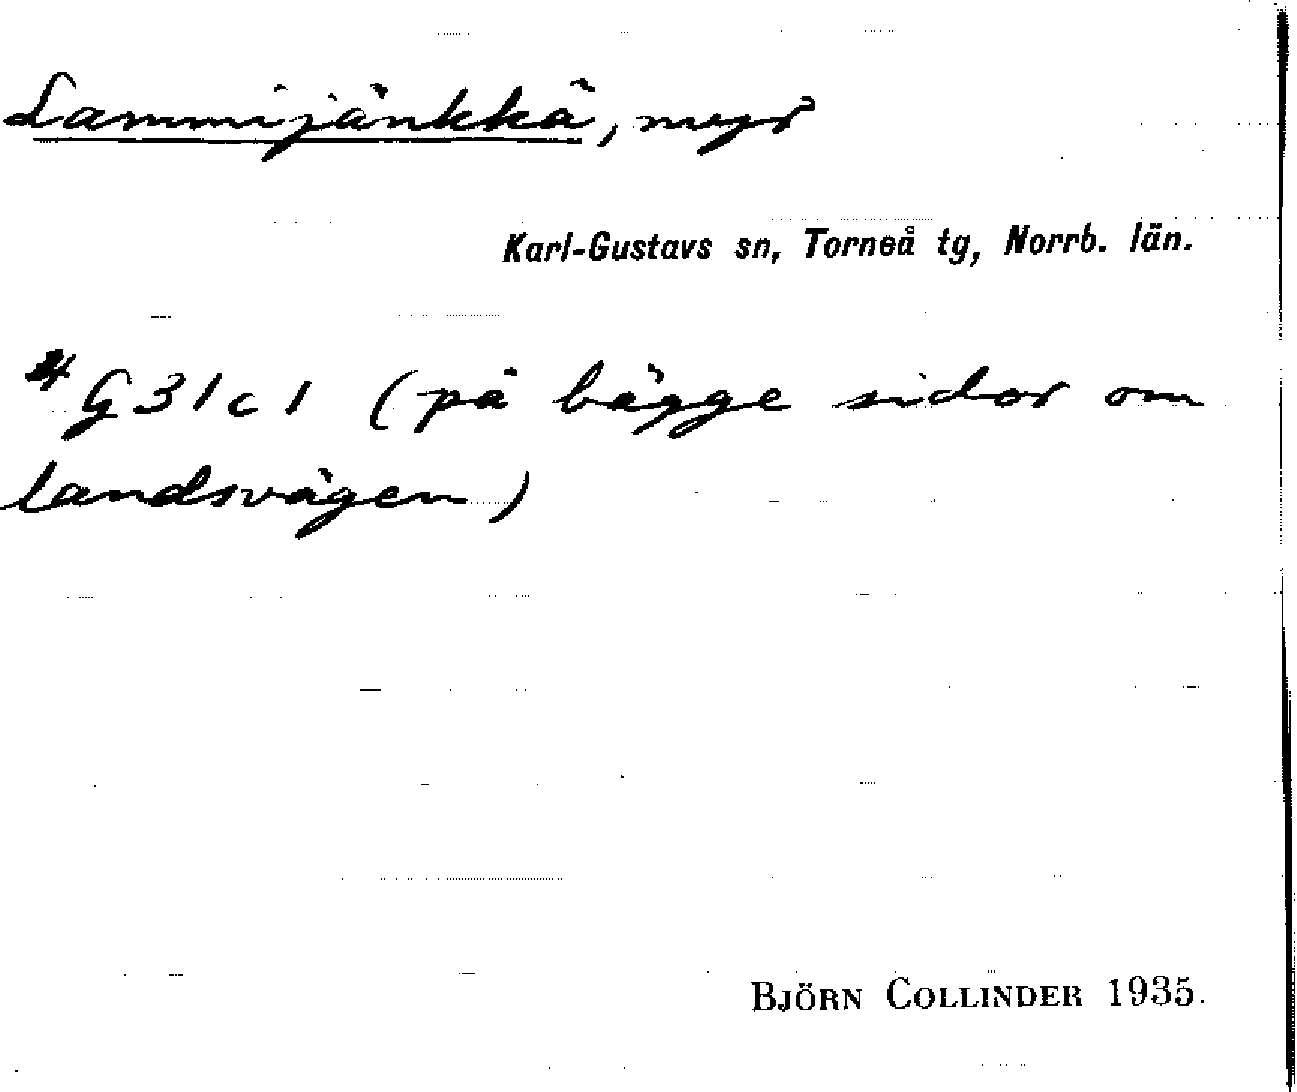 Lammijänkkä, myr
Karl-Gustavs sn, Torneå tg, Norrb. län.
G31c1 (på bägge sidor om
landsvägen)
BJÖRN COLLINDER 1935.